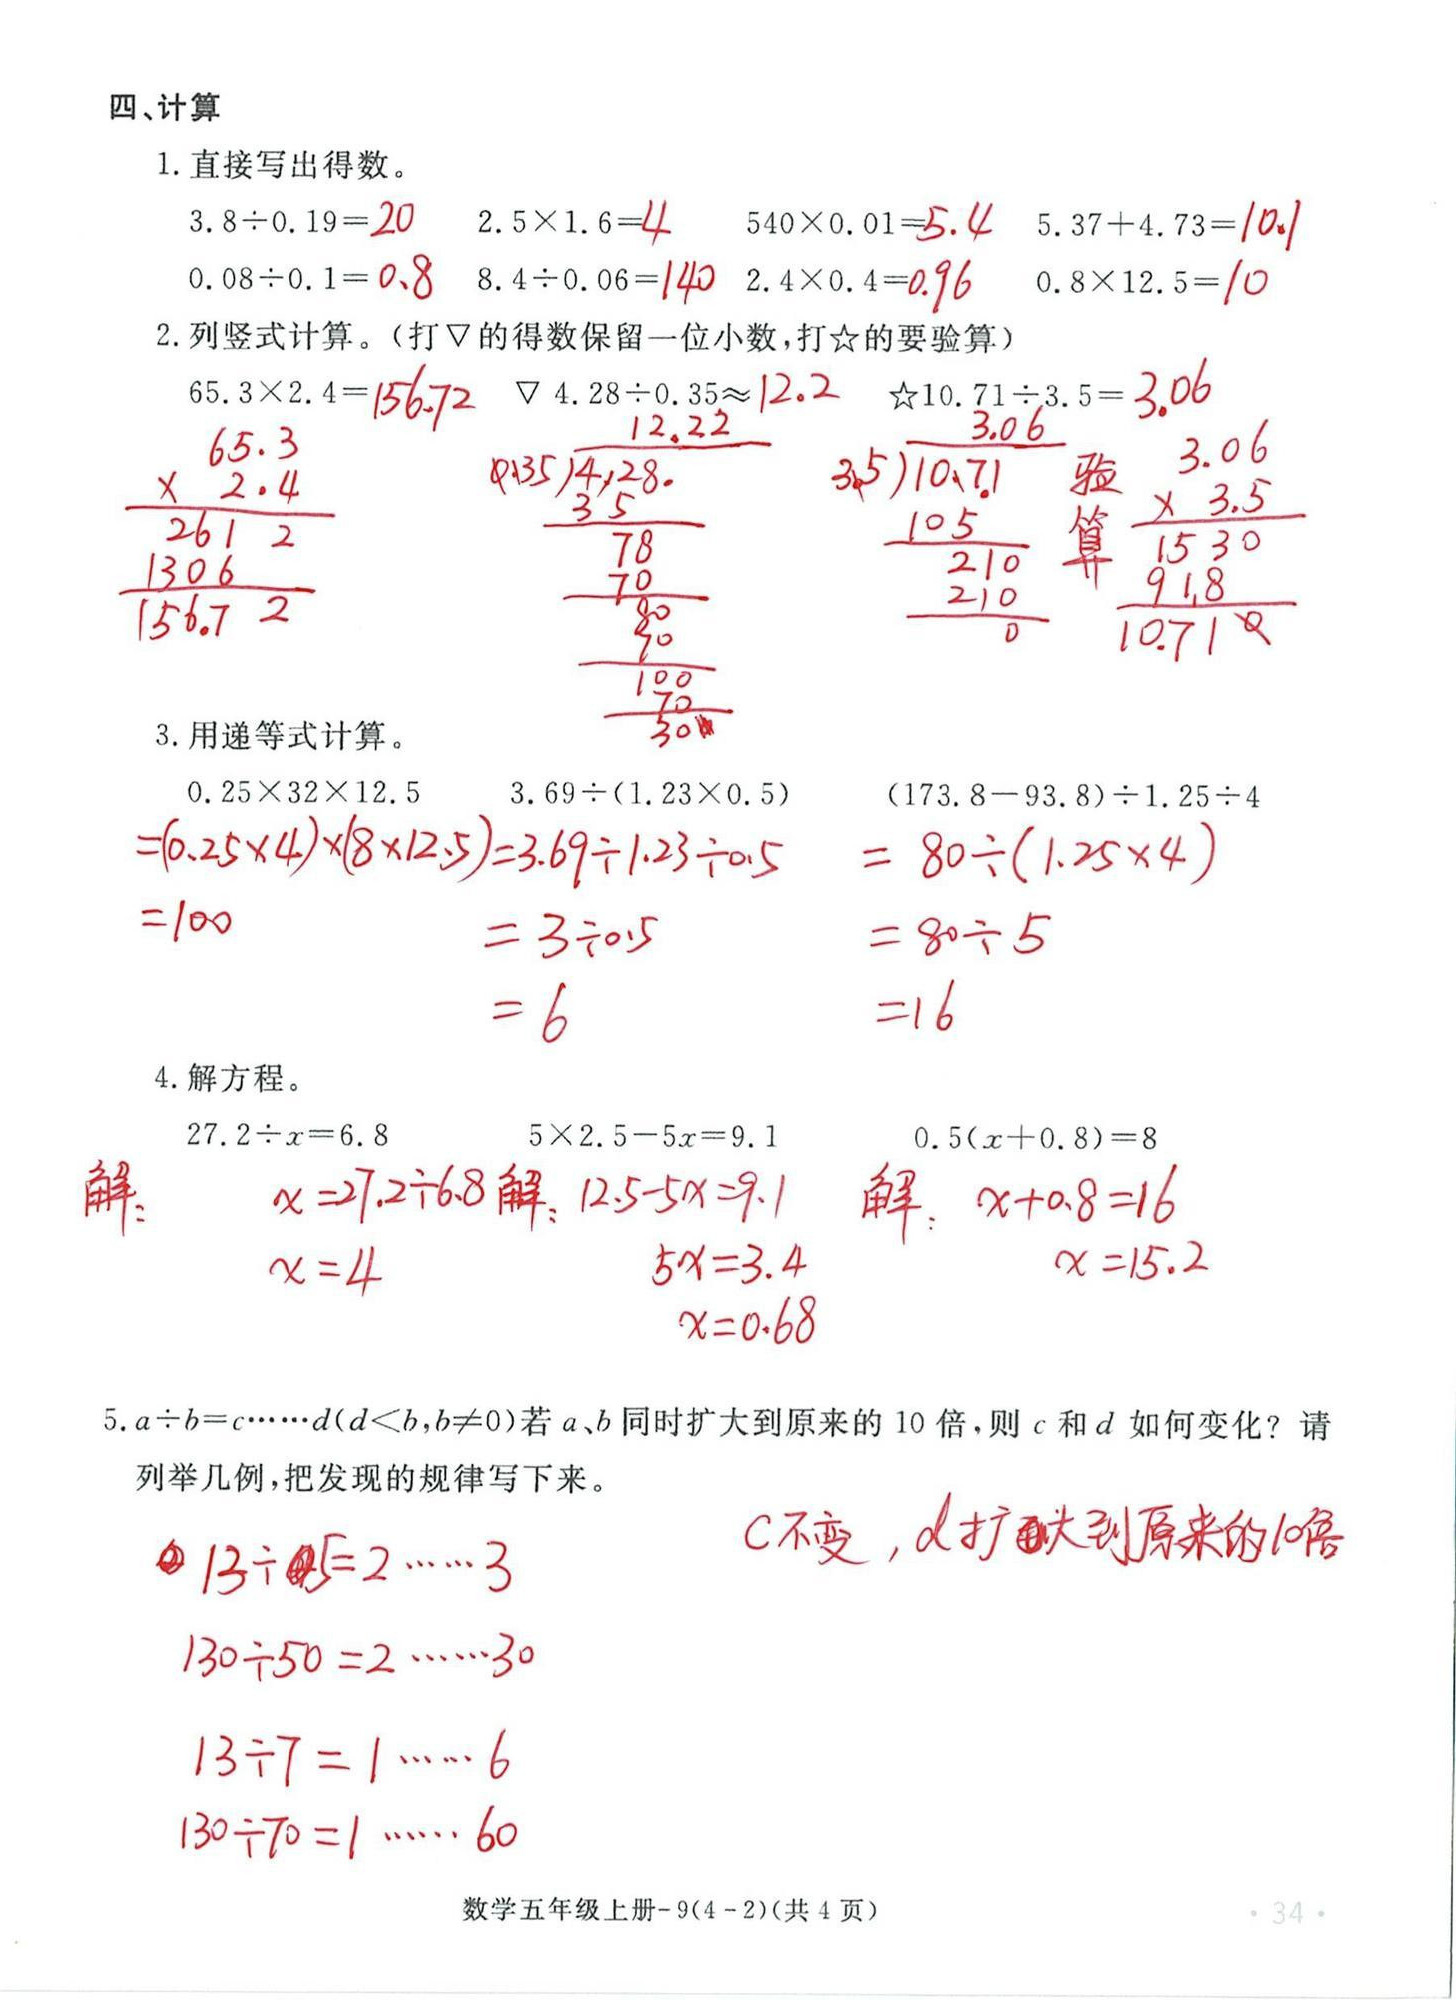 四、计算
1. 直接写出得数。
3.8÷0.19=20 2.5×1.6=4 540×0.01=5.4 5.37+4.73=10.1
0.08÷0.1=0.8 8.4÷0.06=140 2.4×0.4=0.96 0.8×12.5=10
2. 列竖式计算。(打▽的得数保留一位小数,打☆的要验算)
65.3×2.4=156.72 ▽ 4.28÷0.35≈12.2 ☆10.71÷3.5=3.06
65.3
× 2.4
261 2
1306
156.7 2
12.22
0.35)4.28.
35
78
70
80
70
100
70
30
3.06
3.5)10.7.1
105
210
210
0
验算
3.06
× 3.5
1530
918
10.710
3. 用递等式计算。
0.25×32×12.5 3.69÷(1.23×0.5) (173.8-93.8)÷1.25÷4
=(0.25×4)×(8×12.5) =3.69÷1.23÷0.5 =80÷(1.25×4)
=100 =3÷0.5 =80÷5
=6 =16
4. 解方程。
27.2÷x=6.8 5×2.5-5x=9.1 0.5(x+0.8)=8
解: x=27.2÷6.8 解: 12.5-5x=9.1 解: x+0.8=16
x=4 5x=3.4 x=15.2
x=0.68
5. a÷b=c……d(d<b,b≠0)若 a、b 同时扩大到原来的 10 倍,则 c 和 d 如何变化? 请
列举几例,把发现的规律写下来。
C不变,d扩大到原来的10倍
13÷5=2……3
130÷50=2……30
13÷7=1……6
130÷70=1……60
数学五年级上册-9(4-2)(共 4 页)
·34·